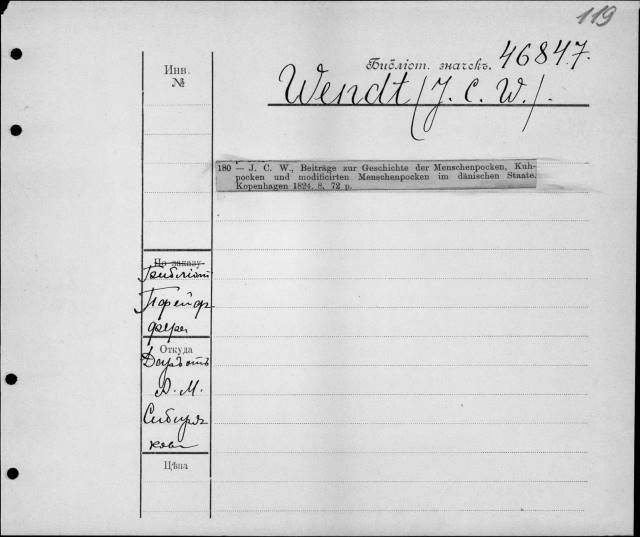 119
Библіот. значекъ. 46847.
Wendt (J. C. W.).
Инв.
№
180 — J. C. W., Beiträge zur Geschichte der Menschenpocken, Kuh-
pocken und modificirten Menschenpocken im dänischen Staate.
Kopenhagen 1824. 8. 72 p.
По заказу
Библіот
Пфейф
фера
Откуда
Даръ отъ
А. М.
Сибиря
кова
Цѣна